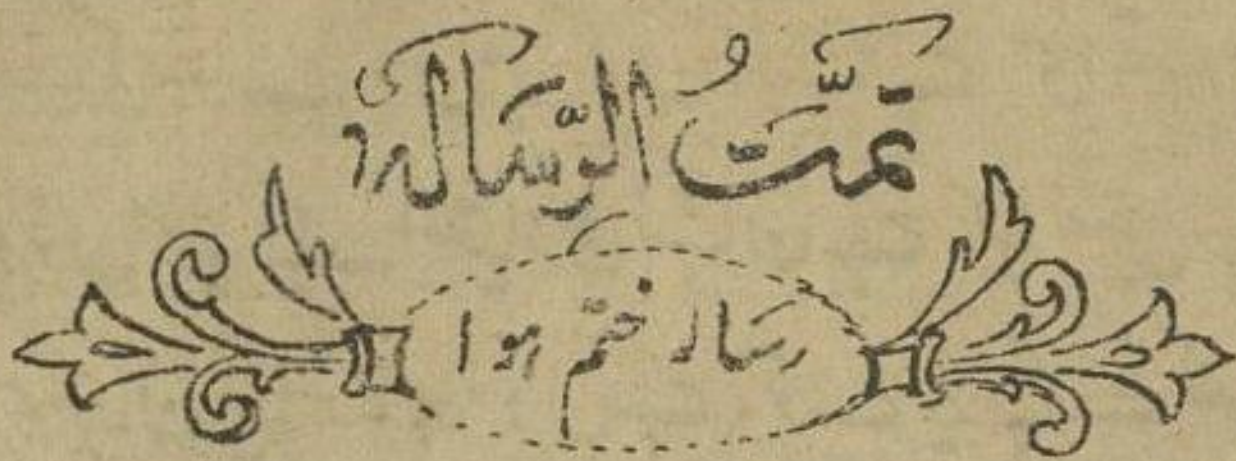 تمَّتُ الرِّسَالہ
رسالہ ختم ہوا